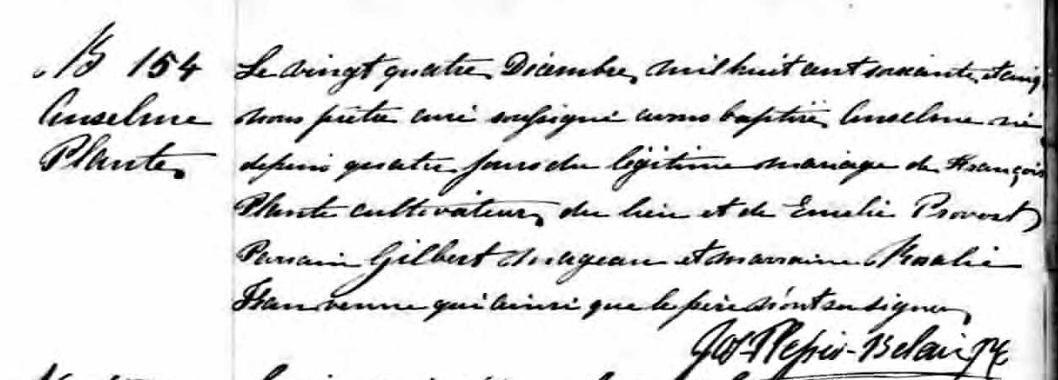 B 154
Anselme
Plante
Le vingt quatre Décembre, mil huit cent soixante, et cinq
nous prêtre curé soussigné avons baptisé, Anselme né
depuis quatre jours du légitime mariage de François
Plante cultivateur, du lieu et de Emelie Provost,
Parrain Gilbert Mageau et marraine Rosalie
venne qui ainsi que le père n'ont su signer,
Jos Plessis-Belair Ptre